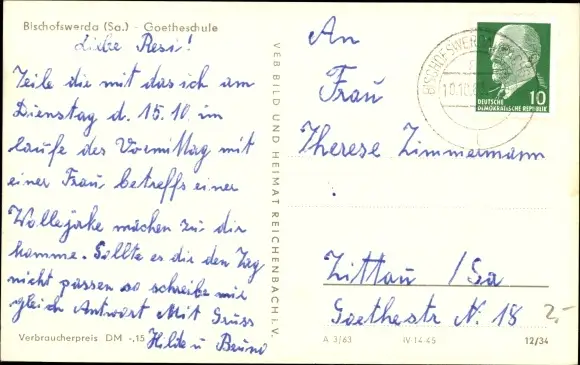 Bischofswerda (Sa.) - Goetheschule
Liebe Resi!
Teile die mit das ich am
Dienstag d. 15.10. im
laufe des Vormittag mit
einer Frau betreffs einer
Wollejake machen zu dir
komme. Sollte es dir den Tag
nicht passen so schreibe mir
gleich Antwort Mit Gruss
Hilde u Bruno
Verbraucherpreis DM -,15
VEB BILD UND HEIMAT REICHENBACH I. V.
An
Frau
Therese Zimmermann
Zittau / Sa
Goethestr N. 18
2,-
A 3/63 IV-14-45 12/34
BISCHOFSWERDA
10.10.63
DEUTSCHE
DEMOKRATISCHE REPUBLIK
10